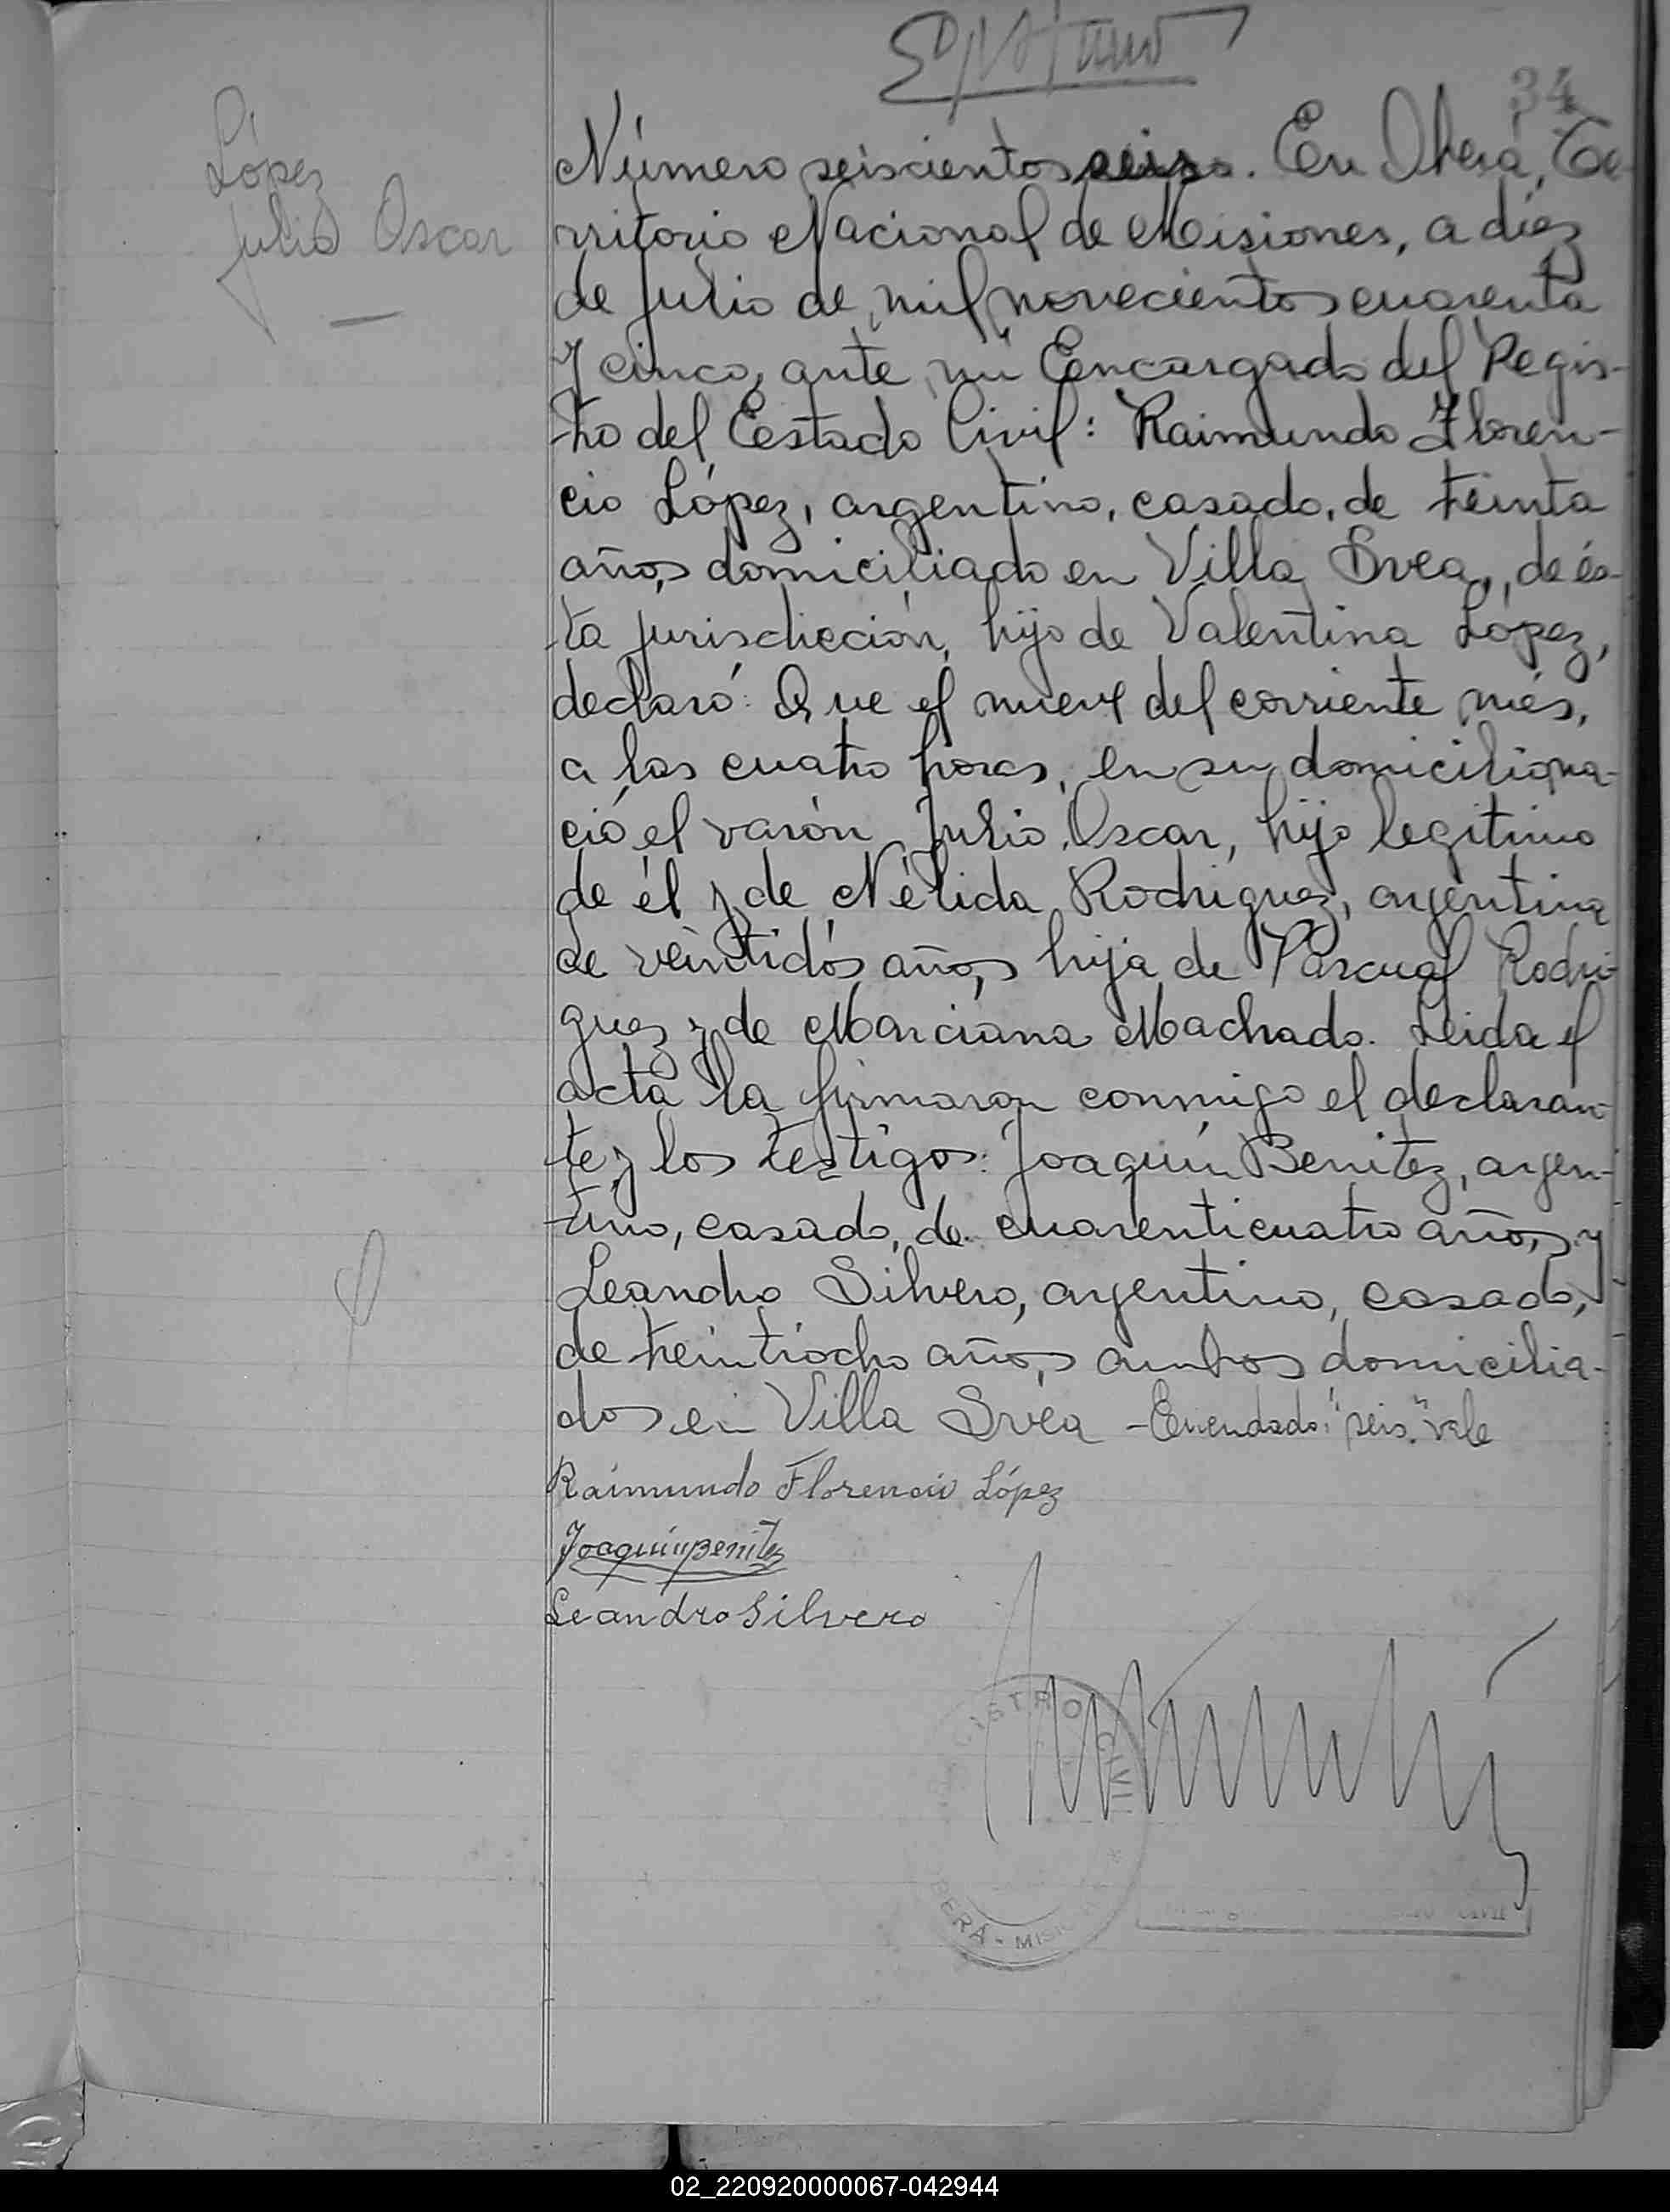 34
López
Julio Oscar
Número seiscientos seis. En Oberá, Te-
rritorio Nacional de Misiones, a diez
de Julio de mil novecientos cuarenta
y cinco, ante mí Encargado del Regis-
tro del Estado Civil: Raimundo Floren-
cio López, argentino, casado, de treinta
años, domiciliado en Villa Svea, de és-
ta jurisdicción, hijo de Valentina López,
declaró: Que el nueve del corriente més,
a las cuatro horas, en su domicilio, na-
ció el varón Julio Oscar, hijo legítimo
de él y de Nélida Rodriguez, argentina
de veintidós años, hija de Pascual Rodri-
guez y de Marciana Machado. Leida el
acta la firmaron conmigo el declaran-
te y los testigos: Joaquín Benitez, argen-
tino, casado, de cuarenticuatro años, y
Leandro Silvero, argentino, casado,
de treintiocho años, ambos domicilia-
dos en Villa Svea - Enmendado: "seis" vale
Raimundo Florencio López
Joaquín Benitez
Leandro Silvero
ISTRO CIVIL
BERÁ - MISI
02_220920000067-042944